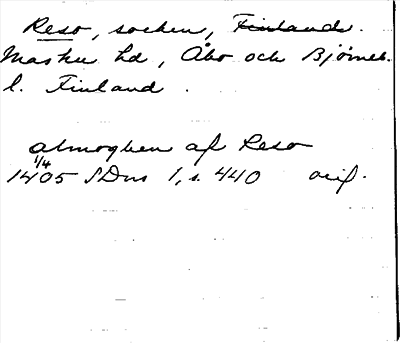 Reso, socken, Finland.
Masku hd, Åbo och Björneb.
l. Finland.
almoghen af Reso
1/4
1405 SDns 1, s. 440 orig.